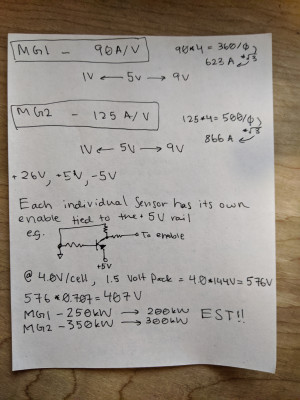 MG1 - 90A/V
90*4 = 360/ϕ
*√3
623 A
1V ← 5V → 9V
MG2 - 125 A/V
125*4 = 500/ϕ
*√3
866 A
1V ← 5V → 9V
+26V, +5V, -5V
Each individual sensor has its own
enable tied to the +5V rail
e.g.
To enable
+5V
@ 4.0V/cell, 1.5 Volt Pack = 4.0*144V = 576V
576 * 0.707 = 407V
MG1 - 250kW → 200kW
MG2 - 350kW → 300kW
EST!!